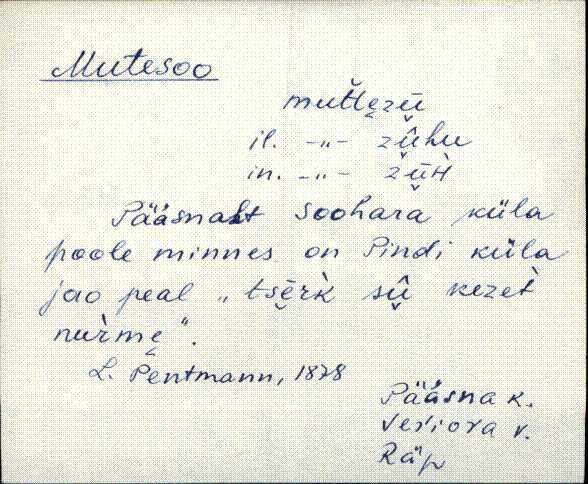 Mutesoo
muťťe̮zū
il. -„- zū̬hu
in. -„- zū̬H̀
Pääsnast Soohara küla
poole minnes on Pindi küla
jao peal „tsē̮ŕk sū̬ kezet
nuŕme̮".
L. Pentmann, 1878
Pääsna k.
Veriora v.
Räp